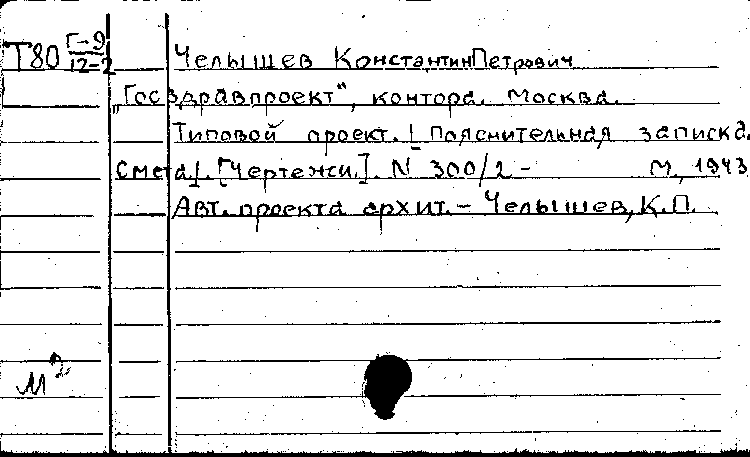 Т80 Г-9/12-2 Челышев Константин Петрович
„Госздравпроект", контора. Москва.
Типовой проект. [Пояснительная записка.
Смета]. [Чертежи.]. N 300/2 - М., 1943
Авт. проекта архит. – Челышев, К.П.
М²